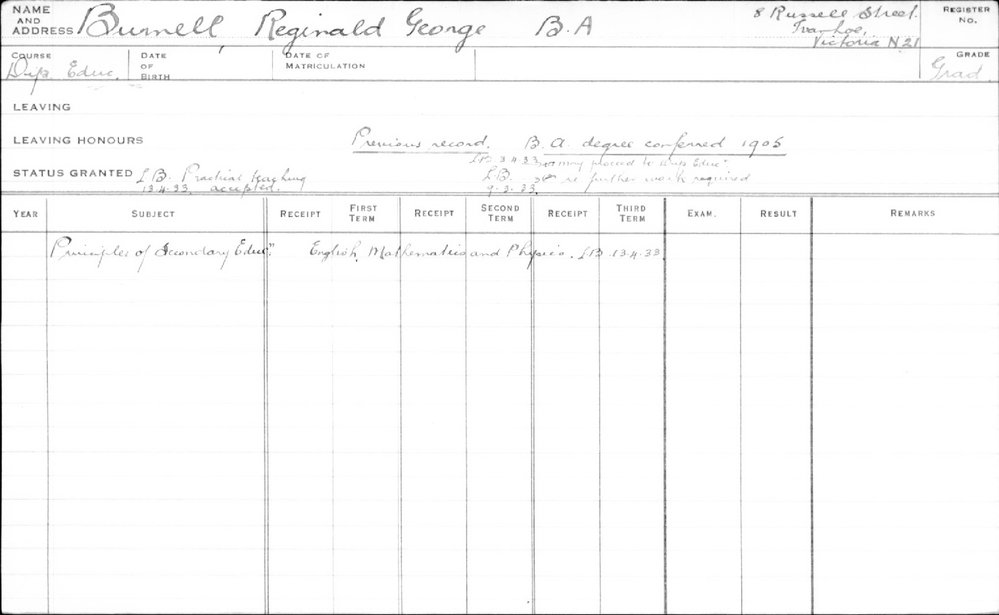 NAME AND ADDRESS Burnell Reginald George B.A
8 Russell Street.
Ivanhoe,
Victoria N.21
REGISTER No.
COURSE Dip. Educ. DATE OF BIRTH DATE OF MATRICULATION GRADE Grad.
LEAVING
LEAVING HONOURS Previous record. B.A. degree conferred 1905
L.B. 3.4.33 may proceed to Dip. Educ"
STATUS GRANTED L.B. Practical teaching L.B. is further work required
13.4.33. accepted. 9.3.33.
YEAR SUBJECT RECEIPT FIRST TERM RECEIPT SECOND TERM RECEIPT THIRD TERM EXAM. RESULT REMARKS
Principles of Secondary Educ". English, Mathematics and Physics. L.B. 13.4.33